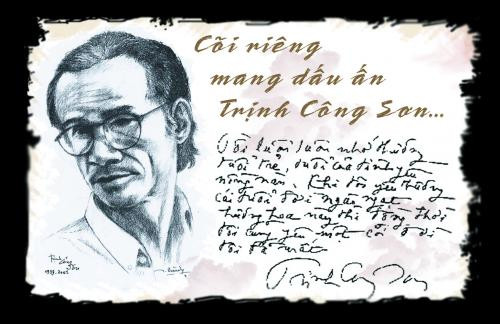 Cõi riêng
mang dấu ấn
Trịnh Công Sơn...
Tôi luôn luôn nhớ thương
tuổi trẻ, tuổi của tình yêu
nồng nàn. Khi tôi yêu thương
cái tuổi đời ngan ngát
hương hoa này thì đồng thời
tôi cũng yêu một cõi
tôi đã mất
Trịnh Công Sơn
Trịnh
Công
Sơn
1939-2001